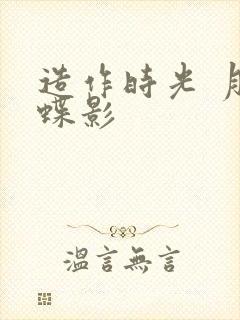 造作時光
蝶影
溫言無言